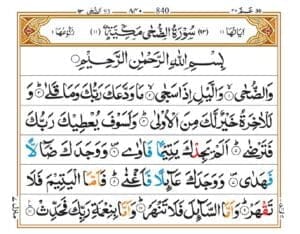 عـم ٣٠ ٨٤٠ الضحى ٩٣
اٰیاتها ۱۱ (٩٣) سُوْرَةُ الضُّحٰى مَكِّيَّةٌ (١١) رُكُوْعُهَا ۱
بِسْمِ اللّٰهِ الرَّحْمٰنِ الرَّحِيْمِ
وَالضُّحٰى ۙ وَالَّيْلِ اِذَا سَجٰى ۙ مَا وَدَّعَكَ رَبُّكَ وَمَا قَلٰى ؕ وَ
لَلْاٰخِرَةُ خَيْرٌ لَّكَ مِنَ الْاُوْلٰى ؕ وَلَسَوْفَ يُعْطِيْكَ رَبُّكَ
فَتَرْضٰى ؕ اَلَمْ يَجِدْكَ يَتِيْمًا فَاٰوٰى ۪ وَوَجَدَكَ ضَآلًّا
فَهَدٰى ۪ وَوَجَدَكَ عَآئِلًا فَاَغْنٰى ؕ فَاَمَّا الْيَتِيْمَ فَلَا
تَقْهَرْ ؕ وَاَمَّا السَّآئِلَ فَلَا تَنْهَرْ ؕ وَاَمَّا بِنِعْمَةِ رَبِّكَ فَحَدِّثْ